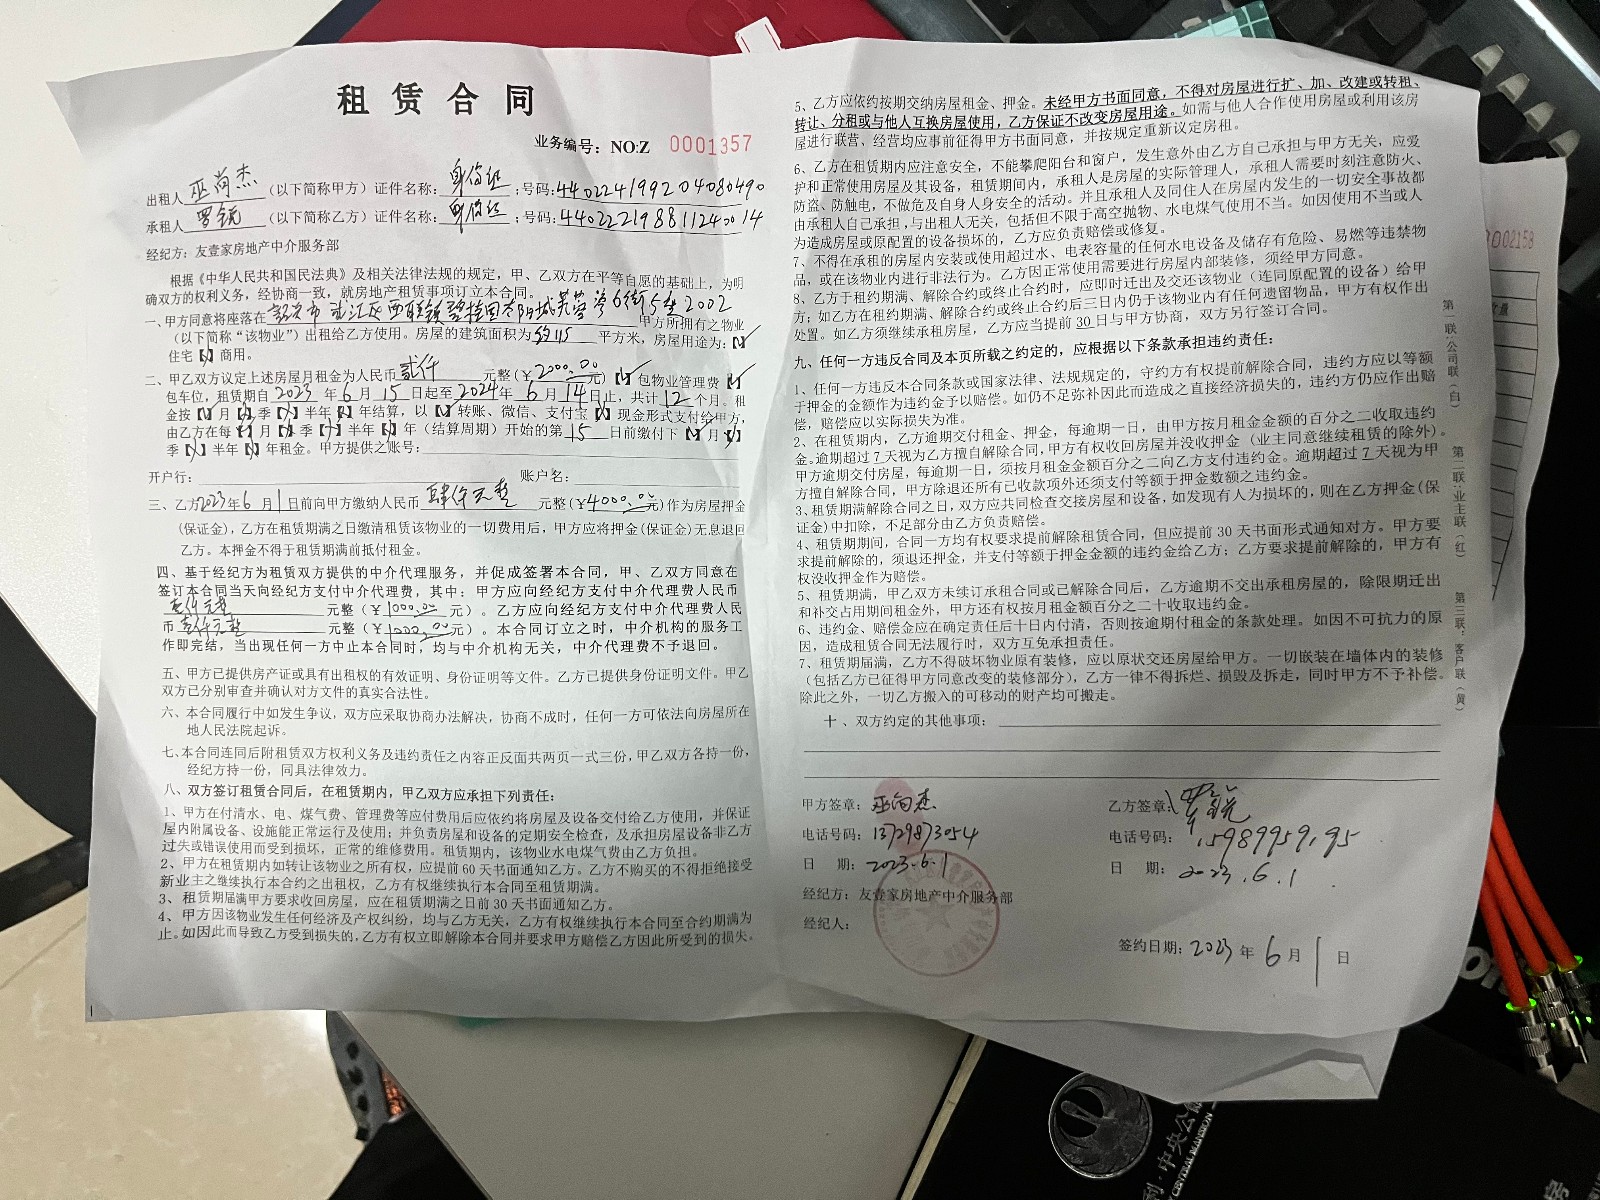 租赁合同
业务编号：NO:Z 0001357
出租人 巫尚杰 (以下简称甲方) 证件名称：身份证；号码：440224199204080490
承租人 罗锐 (以下简称乙方) 证件名称：身份证；号码：440222198811240014
经纪方：友壹家房地产中介服务部
根据《中华人民共和国民法典》及相关法律法规的规定，甲、乙双方在平等自愿的基础上，为明
确双方的权利义务，经协商一致，就房地产租赁事项订立本合同。
一、甲方同意将座落在 韶关市武江区西联镇碧桂园太阳城芙蓉湾6街5座2002 甲方所拥有之物业
（以下简称“该物业”）出租给乙方使用。房屋的建筑面积为 约115 平方米，房屋用途为：【】
住宅【】商用。
二、甲乙双方议定上述房屋月租金为人民币 贰仟 元整（￥2000.00元）【】包物业管理费【】
包车位，租赁期自 2023 年 6 月 15 日起至 2024 年 6 月 14 日止，共计 12 个月。租
金按【】月【】季【】半年【】年结算，以【】转账、微信、支付宝【】现金形式支付给甲方，
由乙方在每【】月【】季【】半年【】年（结算周期）开始的第 15 日前缴付下【】月【】
季【】半年【】年租金。甲方提供之账号：
开户行： 账户名：
三、乙方 2023年 6 月 1 日前向甲方缴纳人民币 肆仟元整 元整（￥4000.00元）作为房屋押金
(保证金)，乙方在租赁期满之日缴清租赁该物业的一切费用后，甲方应将押金(保证金)无息退回
乙方。本押金不得于租赁期满前抵付租金。
四、基于经纪方为租赁双方提供的中介代理服务，并促成签署本合同，甲、乙双方同意在
签订本合同当天向经纪方支付中介代理费，其中：甲方应向经纪方支付中介代理费人民币
壹仟元整 元整（￥1000.00 元）。乙方应向经纪方支付中介代理费人民
币 壹仟元整 元整（￥1000.00元）。本合同订立之时，中介机构的服务工
作即完结，当出现任何一方中止本合同时，均与中介机构无关，中介代理费不予退回。
五、甲方已提供房产证或具有出租权的有效证明、身份证明等文件。乙方已提供身份证明文件。甲乙
双方已分别审查并确认对方文件的真实合法性。
六、本合同履行中如发生争议，双方应采取协商办法解决，协商不成时，任何一方可依法向房屋所在
地人民法院起诉。
七、本合同连同后附租赁双方权利义务及违约责任之内容正反面共两页一式三份，甲乙双方各持一份，
经纪方持一份，同具法律效力。
八、双方签订租赁合同后，在租赁期内，甲乙双方应承担下列责任：
1、甲方在付清水、电、煤气费、管理费等应付费用后应依约将房屋及设备交付给乙方使用，并保证
屋内附属设备、设施能正常运行及使用；并负责房屋和设备的定期安全检查，及承担房屋设备非乙方
过失或错误使用而受到损坏，正常的维修费用。租赁期内，该物业水电煤气费由乙方负担。
2、甲方在租赁期内如转让该物业之所有权，应提前60天书面通知乙方。乙方不购买的不得拒绝接受
新业主之继续执行本合约之出租权，乙方有权继续执行本合同至租赁期满。
3、租赁期届满甲方要求收回房屋，应在租赁期满之日前30天书面通知乙方。
4、甲方因该物业发生任何经济及产权纠纷，均与乙方无关，乙方有权继续执行本合同至合约期满为
止。如因此而导致乙方受到损失的，乙方有权立即解除本合同并要求甲方赔偿乙方因此所受到的损失。
5、乙方应依约按期交纳房屋租金、押金。未经甲方书面同意，不得对房屋进行扩、加、改建或转租、
转让、分租或与他人互换房屋使用，乙方保证不改变房屋用途。如需与他人合作使用房屋或利用该房
屋进行联营、经营均应事前征得甲方书面同意，并按规定重新议定房租。
6、乙方在租赁期内应注意安全，不能攀爬阳台和窗户，发生意外由乙方自己承担与甲方无关，应爱
护和正常使用房屋及其设备，租赁期间内，承租人是房屋的实际管理人，承租人需要时刻注意防火、
防盗、防触电，不做危及自身人身安全的活动。并且承租人及同住人在房屋内发生的一切安全事故都
由承租人自己承担，与出租人无关，包括但不限于高空抛物、水电煤气使用不当。如因使用不当或人
为造成房屋或原配置的设备损坏的，乙方应负责赔偿或修复。
7、不得在承租的房屋内安装或使用超过水、电表容量的任何水电设备及储存有危险、易燃等违禁物
品，或在该物业内进行非法行为。乙方因正常使用需要进行房屋内部装修，须经甲方同意。
8、乙方于租约期满、解除合约或终止合约时，应即时迁出及交还该物业（连同原配置的设备）给甲
方；如乙方在租约期满、解除合约或终止合约后三日内仍于该物业内有任何遗留物品，甲方有权作出
处置。如乙方须继续承租房屋，乙方应当提前30日与甲方协商，双方另行签订合同。
九、任何一方违反合同及本页所载之约定的，应根据以下条款承担违约责任：
1、任何一方违反本合同条款或国家法律、法规规定的，守约方有权提前解除合同，违约方应以等额
于押金的金额作为违约金予以赔偿。如仍不足弥补因此而造成之直接经济损失的，违约方仍应作出赔
偿，赔偿应以实际损失为准。
2、在租赁期内，乙方逾期交付租金、押金，每逾期一日，由甲方按月租金金额的百分之二收取违约
金。逾期超过7天视为乙方擅自解除合同，甲方有权收回房屋并没收押金（业主同意继续租赁的除外）。
甲方逾期交付房屋，每逾期一日，须按月租金金额百分之二向乙方支付违约金。逾期超过7天视为甲
方擅自解除合同，甲方除退还所有已收款项外还须支付等额于押金数额之违约金。
3、租赁期满解除合同之日，双方应共同检查交接房屋和设备，如发现有人为损坏的，则在乙方押金(保
证金)中扣除，不足部分由乙方负责赔偿。
4、租赁期期间，合同一方均有权要求提前解除租赁合同，但应提前30天书面形式通知对方。甲方要
求提前解除的，须退还押金，并支付等额于押金金额的违约金给乙方；乙方要求提前解除的，甲方有
权没收押金作为赔偿。
5、租赁期满，甲乙双方未续订承租合同或已解除合同后，乙方逾期不交出承租房屋的，除限期迁出
和补交占用期间租金外，甲方还有权按月租金额百分之二十收取违约金。
6、违约金、赔偿金应在确定责任后十日内付清，否则按逾期付租金的条款处理。如因不可抗力的原
因，造成租赁合同无法履行时，双方互免承担责任。
7、租赁期届满，乙方不得破坏物业原有装修，应以原状交还房屋给甲方。一切嵌装在墙体内的装修
（包括乙方已征得甲方同意改变的装修部分），乙方一律不得拆烂、损毁及拆走，同时甲方不予补偿。
除此之外，一切乙方搬入的可移动的财产均可搬走。
十、双方约定的其他事项：
甲方签章：巫尚杰 乙方签章：罗锐
电话号码：13729873054 电话号码：15989959195
日 期：2023.6.1 日 期：2023.6.1
经纪方：友壹家房地产中介服务部
经纪人：
签约日期：2023 年 6 月 1 日
第一联：公司联（白） 第二联：业主联（红） 第三联：客户联（黄）
0002158
利·中央公
CENTRAL MANSION